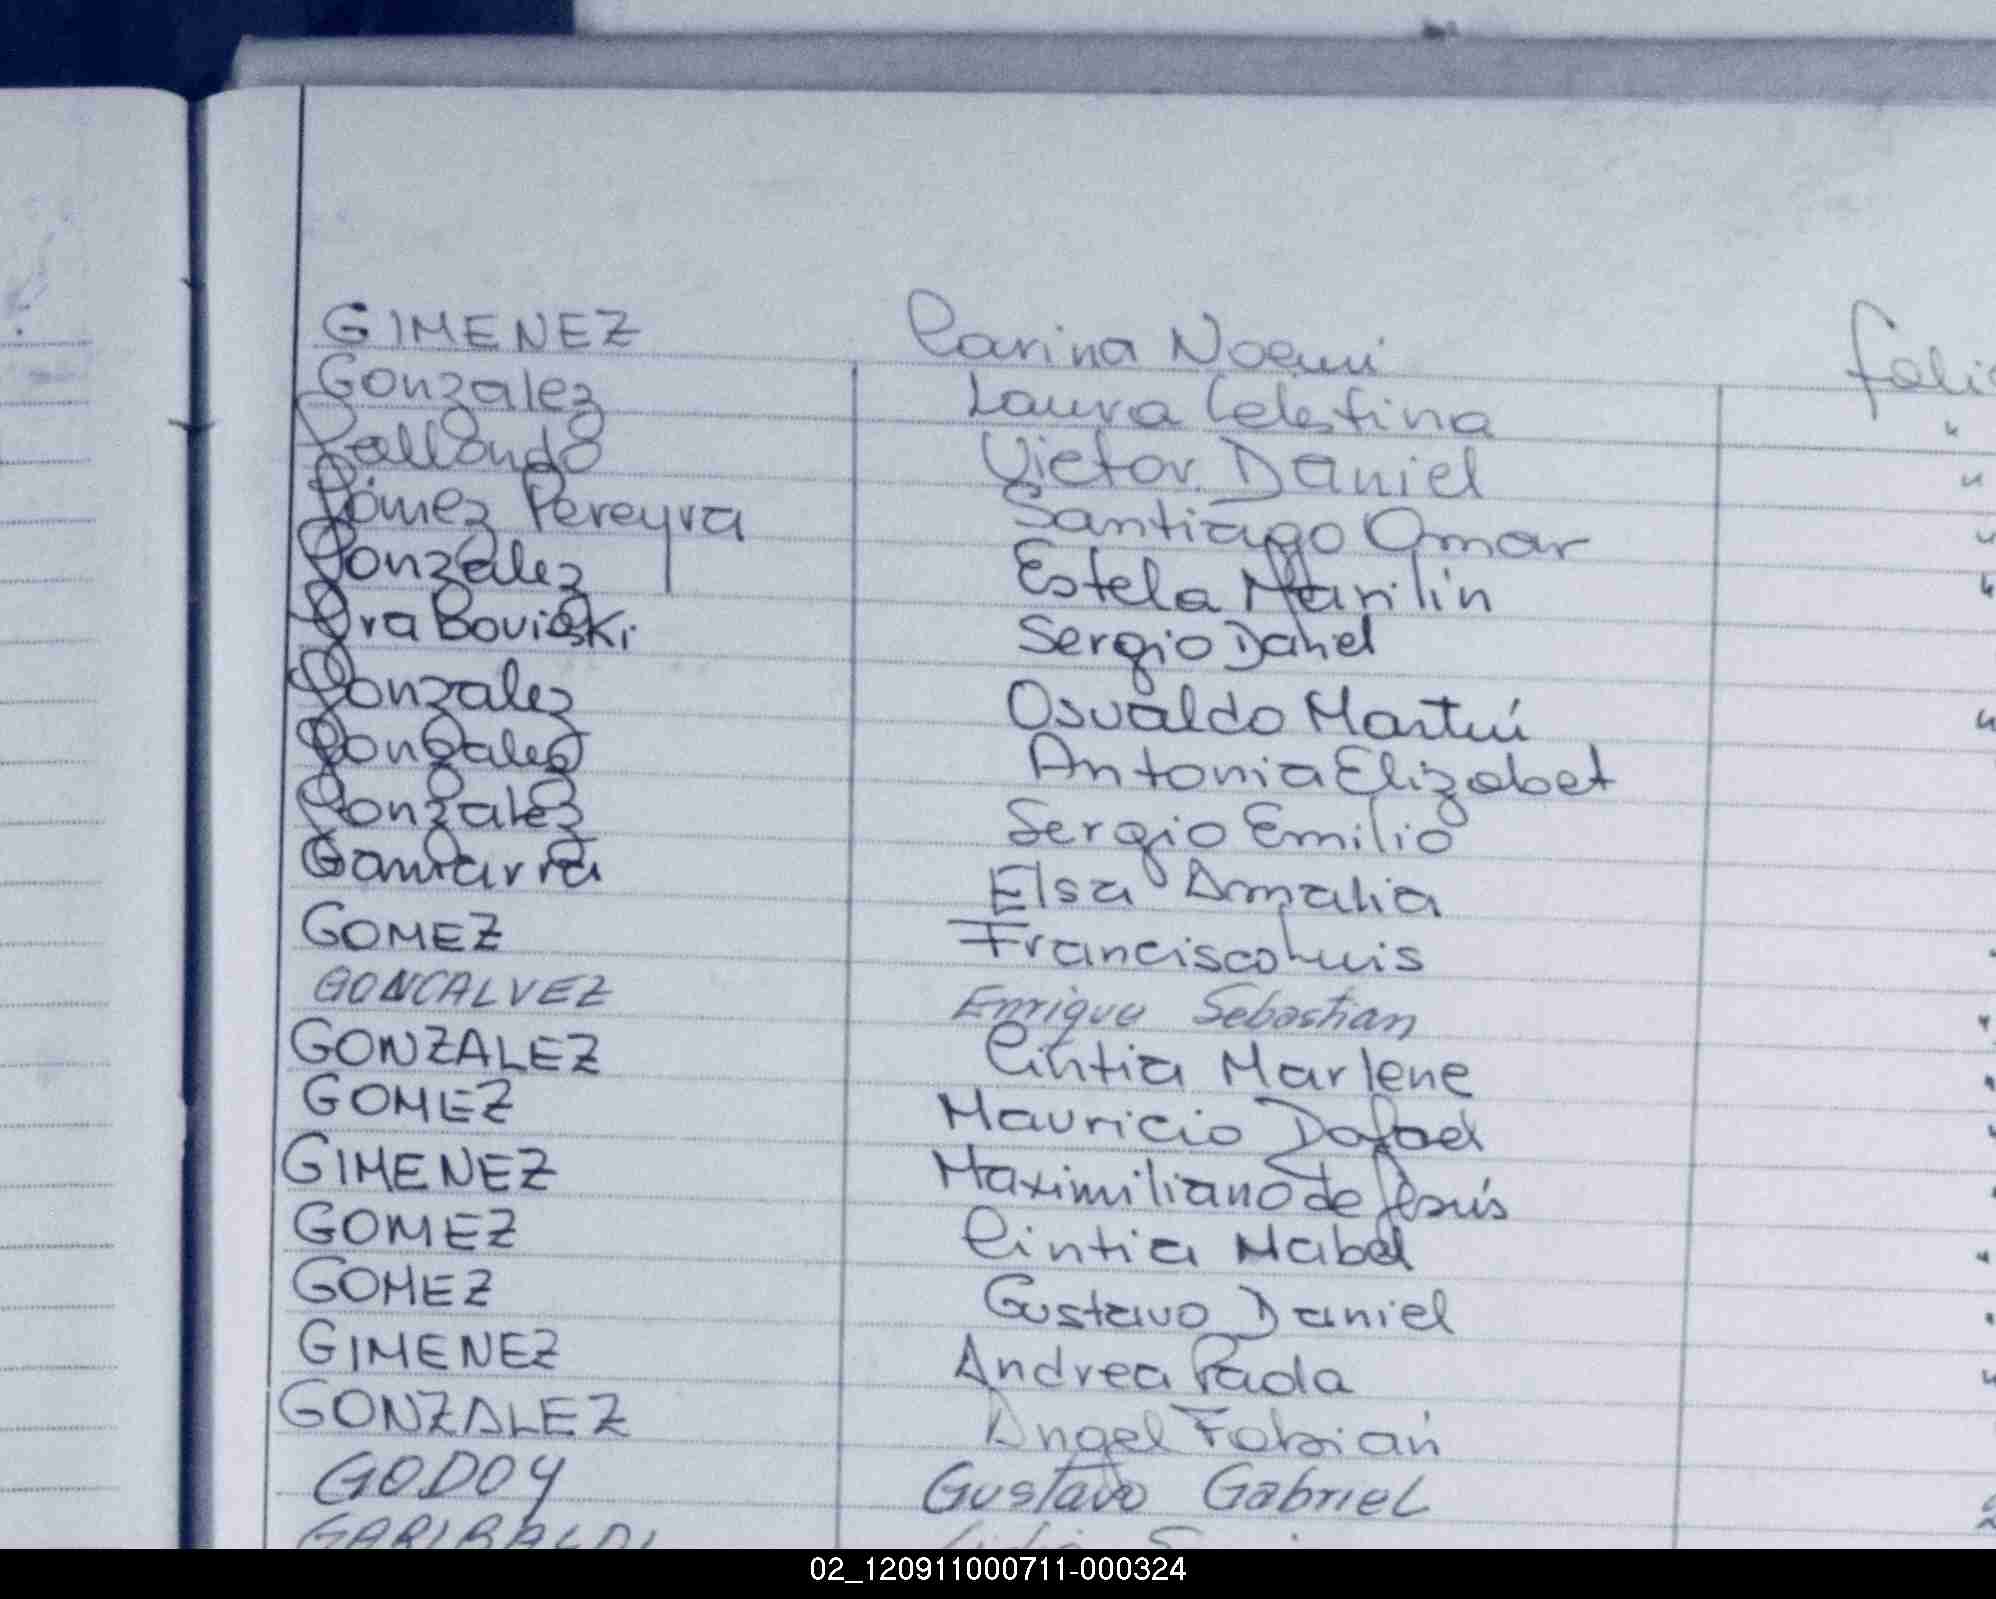 GIMENEZ Carina Noemi folio
Gonzalez Laura Celestina "
Gallando Victor Daniel "
Gómez Pereyra Santiago Omar "
Gonzalez Estela Marilin "
GraBovieski Sergio Daniel
Gonzalez Osvaldo Martin "
Gonzalez Antonia Elizabet
Gonzalez Sergio Emilio
Gamarra Elsa Amalia
GOMEZ Francisco Luis
GONCALVEZ Enrique Sebastian "
GONZALEZ Cintia Marlene "
GOMEZ Mauricio Dafael "
GIMENEZ Maximiliano de Jesús "
GOMEZ Cintia Mabel "
GOMEZ Gustavo Daniel "
GIMENEZ Andrea Paola "
GONZALEZ Angel Fabian
GODOY Gustavo Gabriel
GARIBALDI
02_120911000711-000324